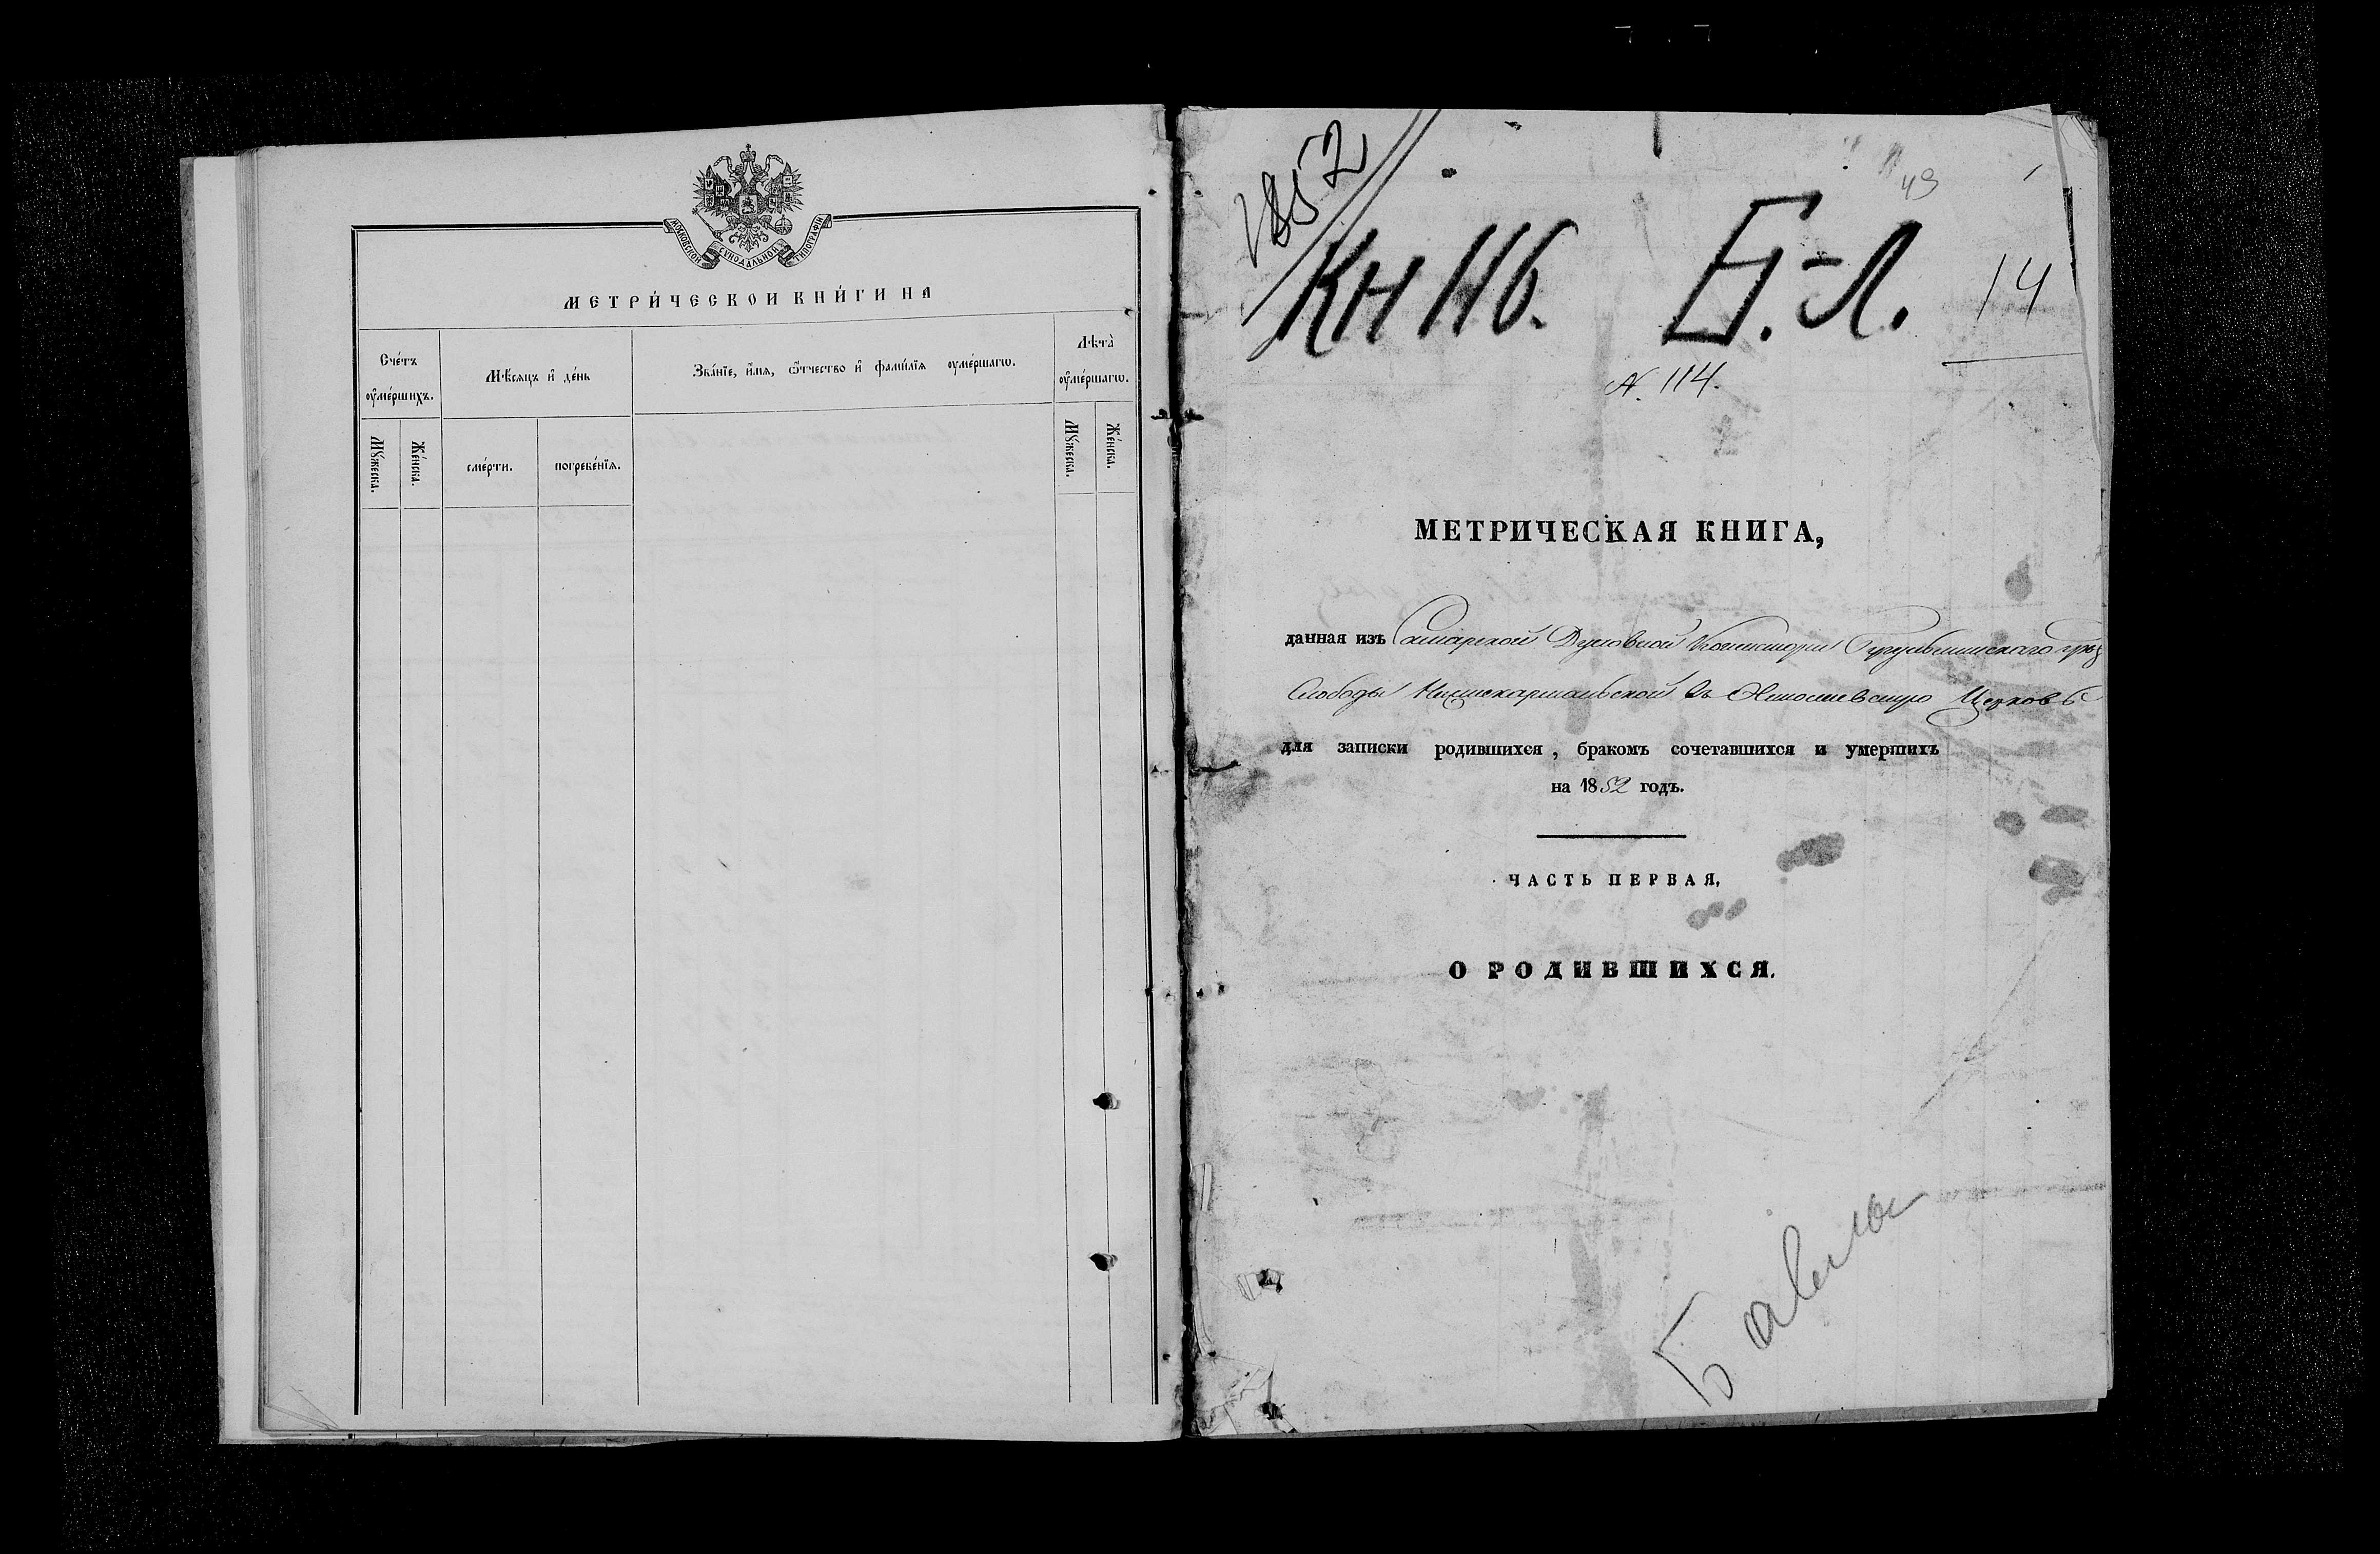 МОСКОВСКОЙ СѴНОДАЛЬНОЙ ТИПОГРАФІИ
МЕТРИ́ЧЕСКОЙ КНИ́ГИ НА
Сче́тъ ᲂу҆ме́ршихъ.
Мѣ́сяцъ и҆ де́нь
Зва́нїе, и҆́мѧ, ѻ҆́тчество и҆ фамі́лїѧ ᲂу҆ме́ршагѡ.
Лѣ́та ᲂу҆ме́ршагѡ.
Мꙋ́жеска.
Же́нска.
сме́рти.
погребе́нїѧ.
Мꙋ́жеска.
Же́нска.
1852
49
Кн 116. Б.-Л. 14
N. 114.
МЕТРИЧЕСКАЯ КНИГА,
данная изъ Самарской Духовной Консисторіи Бугульминскаго
Слободы въ Церковь
для записки родившихся, бракомъ сочетавшихся и умершихъ
на 1852 годъ.
ЧАСТЬ ПЕРВАЯ,
О РОДИВШИХСЯ.
Бавлы